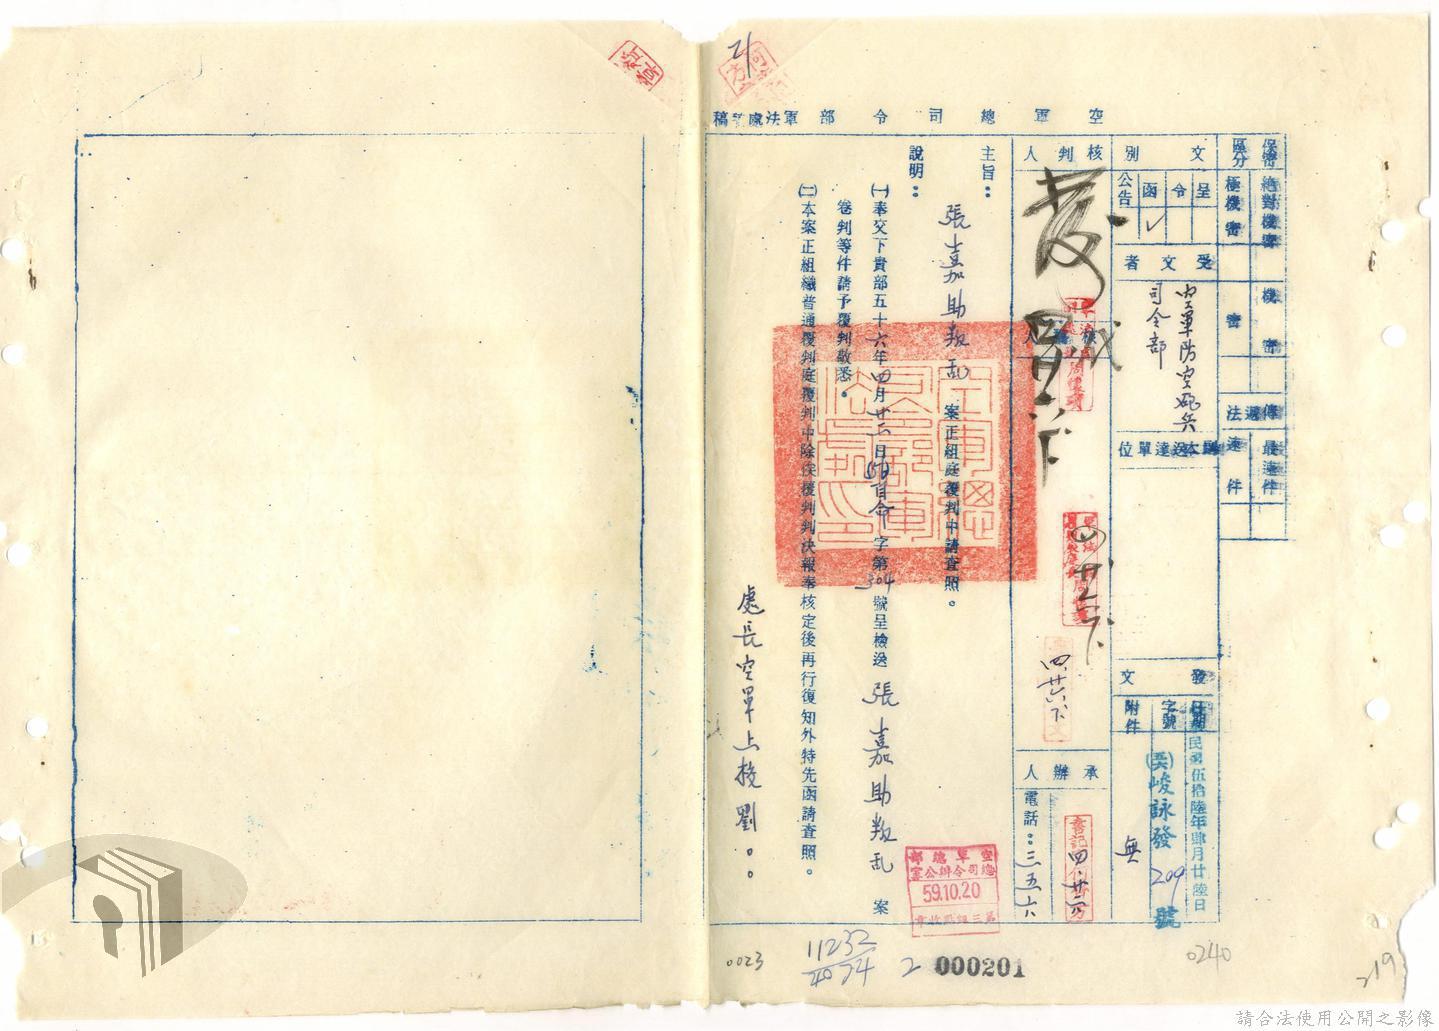 空軍總司令部軍法處 稿
保密區分
絕對機密
極機密
機密
密
傳遞法
最速件
速件
文別
呈
令
函
公告
✓
受文者
空軍防空砲兵
司令部
副本送達單位
發文
日期
民國伍拾陸年肆月廿陸日
字號
(五六)峻詠發 209 號
附件
無
核判人
四.廿六.下
承辦人
四.廿六
電話：三五六八
主旨：
張嘉助叛乱 案正組庭覆判中請查照。
說明：
(一)奉交下貴部五十六年四月廿二日 字第304號呈檢送 張嘉助叛乱 案
卷判等件請予覆判敬悉。
(二)本案正組織普通覆判庭覆判中除俟覆判判決報奉核定後再行復知外特先函請查照。
處長空軍上校劉。。
空軍總部
總司令辦公室
59.10.20
第三組點收章
21
0023
11232
4074
2
000201
0240
219
請合法使用公開之影像